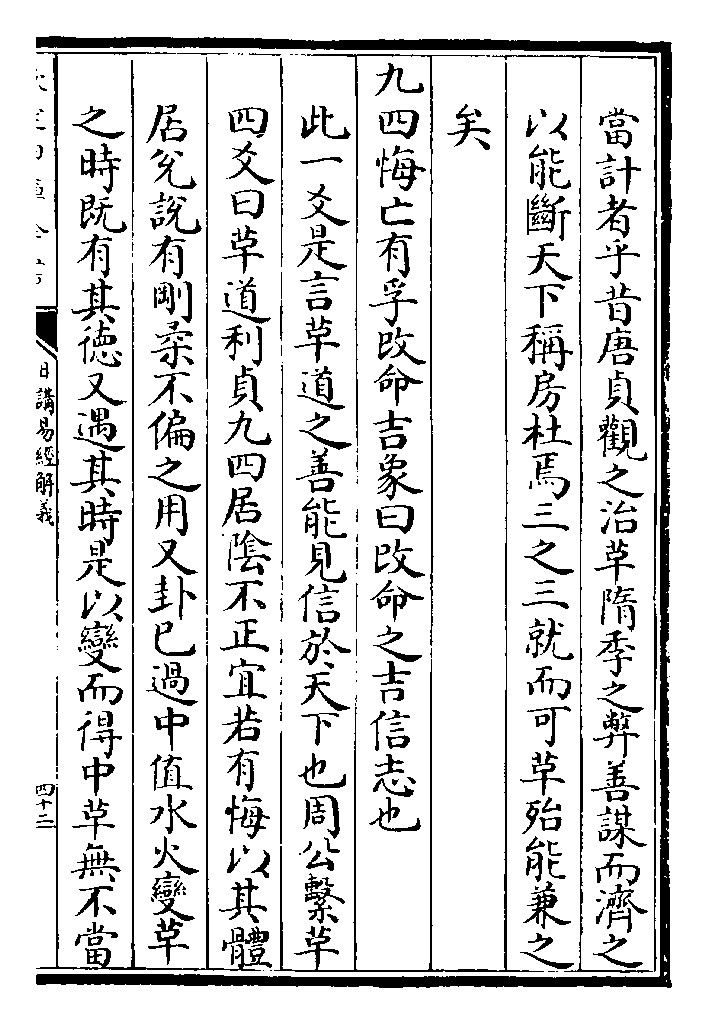 當計者乎昔唐貞觀之治革隋季之弊善謀而濟之
以能斷天下稱房杜焉三之三就而可革殆能兼之
矣
九四悔亡有孚改命吉象曰改命之吉信志也
此一爻是言革道之善能見信於天下也周公繫革
四爻曰革道利貞九四居陰不正宜若有悔以其體
居兌說有剛柔不偏之用又卦已過中值水火變革
之時既有其德又遇其時是以變而得中革無不當
日講易經解義
四十二